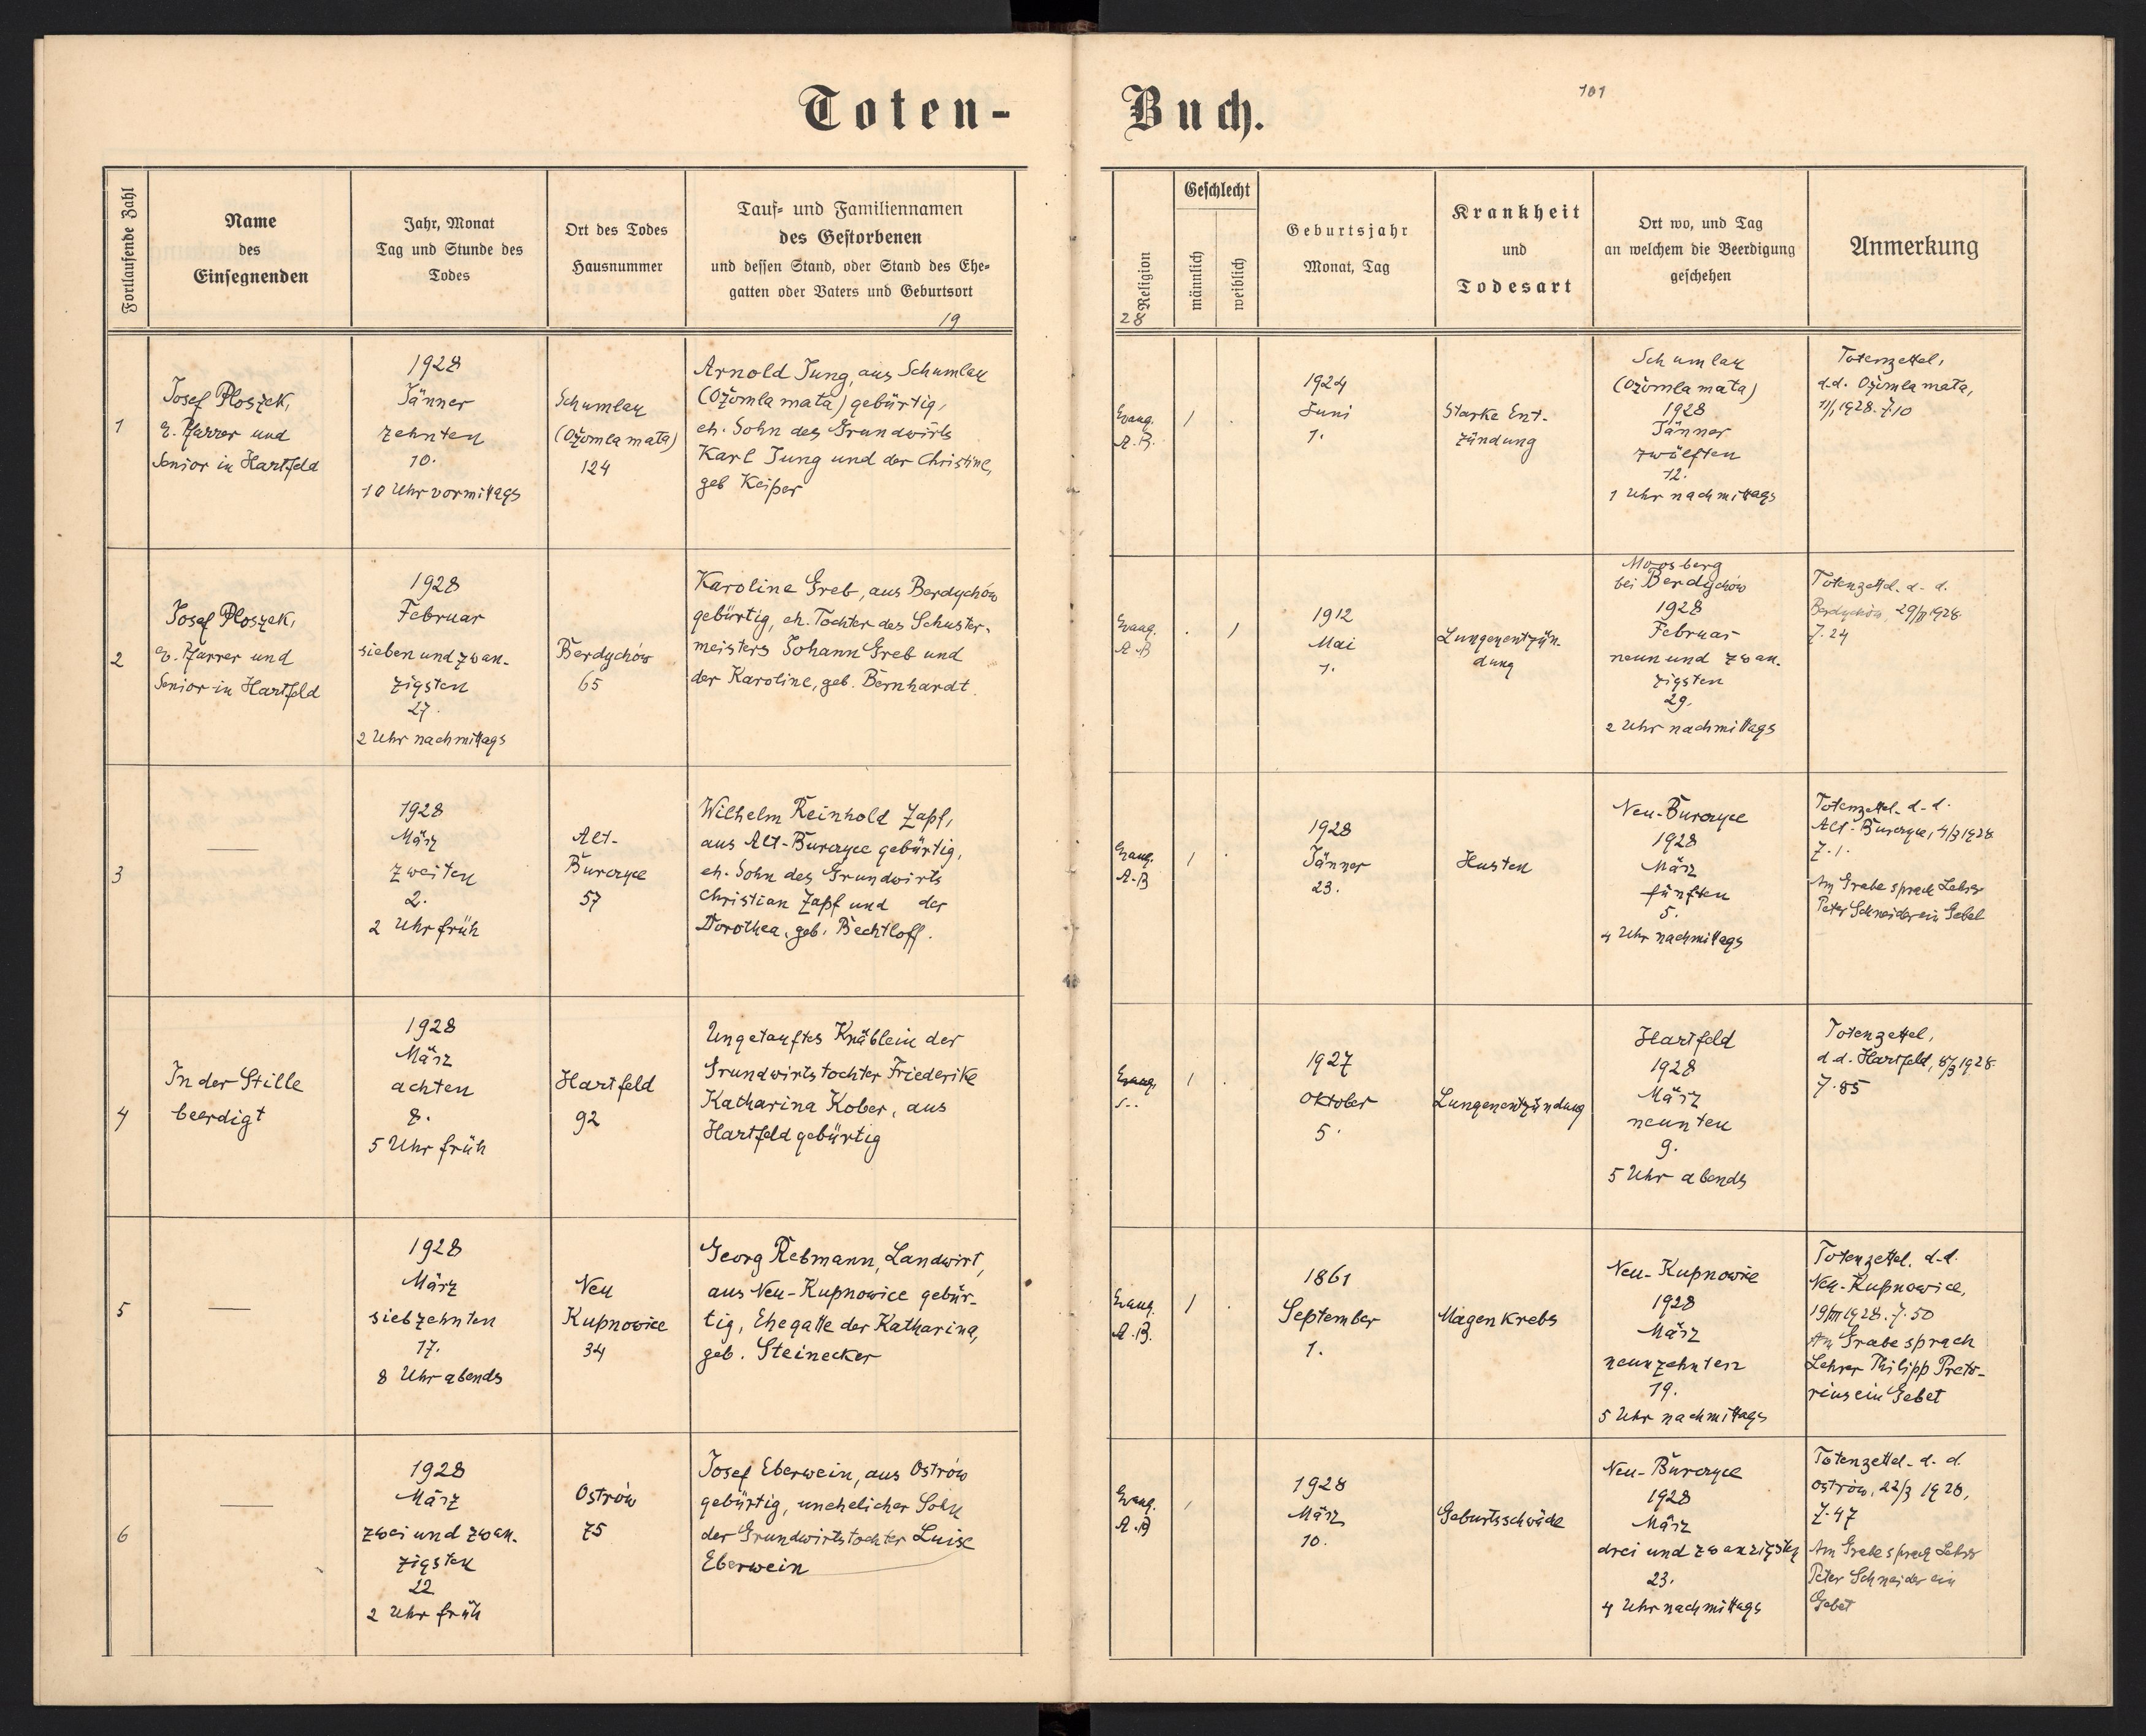 Toten-
Buch.
101
Fortlaufende Zahl
Name
des
Einsegnenden
Jahr, Monat
Tag und Stunde des
Todes
Ort des Todes
Hausnummer
Tauf- und Familiennamen
des Gestorbenen
und dessen Stand, oder Stand des Ehe-
gatten oder Vaters und Geburtsort
19
Religion
28
Geschlecht
männlich
weiblich
Geburtsjahr
Monat, Tag
Krankheit
und
Todesart
Ort wo, und Tag
an welchem die Beerdigung
geschehen
Anmerkung
1
Josef Ploszek,
e. Pfarrer und
Senior in Hartfeld
1928
Jänner
zehnten
10.
10 Uhr vormittags
Schumlau
(Ożomla mała)
124
Arnold Jung, aus Schumlau
(Ożomla mała) gebürtig,
eh. Sohn des Grundwirts
Karl Jung und der Christine,
geb Keiper
Evang.
A.B.
1
.
1924
Juni
1.
Starke Ent-
zündung
Schumlau
(Ożomla mała)
1928
Jänner
zwölften
12.
1 Uhr nachmittags
Totenzettel,
d.d. Ożomla mała,
11/1 1928. Z.10
2
Josef Ploszek,
e. Pfarrer und
Senior in Hartfeld
1928
Februar
sieben und zwan-
zigsten
27.
2 Uhr nachmittags
Berdychów
65
Karoline Greb, aus Berdychów
gebürtig, eh. Tochter des Schuster-
meisters Johann Greb und
der Karoline, geb. Bernhardt.
Evang.
A.B
.
1
1912
Mai
1.
Lungenentzün-
dung
Moosberg
bei Berdychów
1928
Februar
neun und zwan-
zigsten
29.
2 Uhr nachmittags
Totenzettel. d. d.
Berdychów, 29/II 1928
Z. 24
3
—
1928
März
zweiten
2.
2 Uhr früh
Alt-
Burczyce
57
Wilhelm Reinhold Zapf,
aus Alt-Burczyce gebürtig,
eh. Sohn des Grundwirts
Christian Zapf und der
Dorothea, geb. Bechtloff.
Evang.
A.B
1
.
1928
Jänner
23.
Husten
Neu-Burczyce
1928
März
fünften
5.
4 Uhr nachmittags
Totenzettel. d. d.
Alt-Burczyce, 4/3 1928
Z. 1.
Am Grabe sprach Lehrer
Peter Schneider ein Gebet
4
In der Stille
beerdigt
1928
März
achten
8.
5 Uhr früh
Hartfeld
92
Ungetauftes Knäblein der
Grundwirtstochter Friederike
Katharina Kober, aus
Hartfeld gebürtig
Evang.
1
.
1927
Oktober
5.
Lungenentzündung
Hartfeld
1928
März
neunten
9.
5 Uhr abends
Totenzettel,
d.d. Hartfeld, 8/3 1928.
Z. 85
5
—
1928
März
siebzehnten
17.
8 Uhr abends
Neu
Kupnowice
34
Georg Rebmann, Landwirt,
aus Neu-Kupnowice gebür-
tig, Ehegatte der Katharina,
geb. Steinecker
Evang.
A.B.
1
.
1861
September
1.
Magenkrebs
Neu-Kupnowice
1928
März
neunzehnten
19.
5 Uhr nachmittags
Totenzettel. d.d.
Neu-Kupnowice,
19/III 1928. Z. 50
Am Grabe sprach
Lehrer Philipp Preto-
rius ein Gebet
6
—
1928
März
zwei und zwan-
zigsten
22
2 Uhr früh
Ostrów
75
Josef Eberwein, aus Ostrów
gebürtig, unehelicher Sohn
der Grundwirtstochter Luise
Eberwein
Evang.
A.B
1
.
1928
März
10.
Geburtsschwäche
Neu-Burczyce
1928
März
drei und zwanzigsten
23.
4 Uhr nachmittags
Totenzettel. d. d.
Ostrów, 22/3 1928,
Z. 47
Am Grabe sprach Lehrer
Peter Schneider ein
Gebet